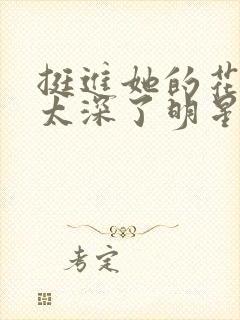 挺进她的花
太深了明星
考定